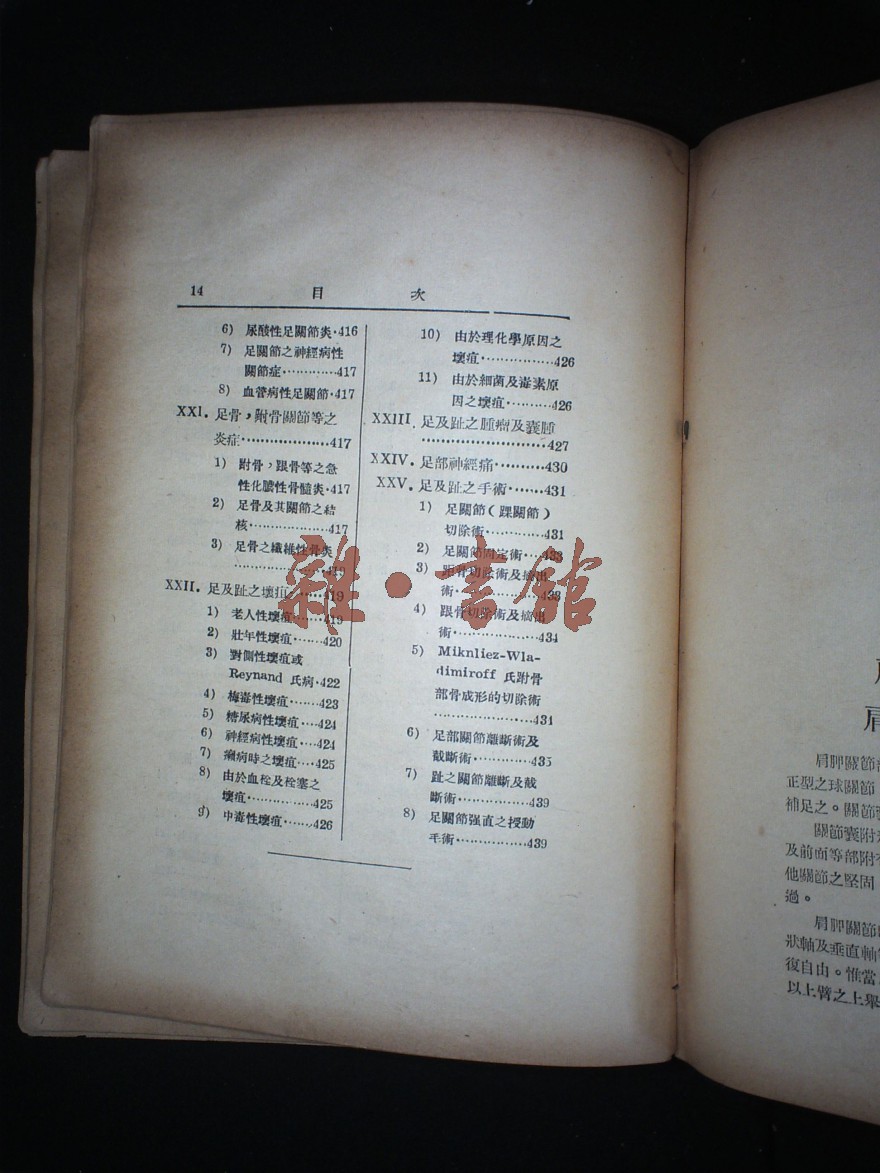 14 目 次
6) 尿酸性足關節炎·416
7) 足關節之神經病性
關節症············417
8) 血管病性足關節·417
XXI. 足骨，跗骨關節等之
炎症···················417
1) 跗骨，跟骨等之急
性化膿性骨髓炎·417
2) 足骨及其關節之結
核··················417
3) 足骨之纖維性骨炎
·····················419
XXII. 足及趾之壞疽·····419
1) 老人性壞疽······419
2) 壯年性壞疽······420
3) 對側性壞疽或
Reynand 氏病·422
4) 梅毒性壞疽······423
5) 糖尿病性壞疽···424
6) 神經病性壞疽···424
7) 癩病時之壞疽···425
8) 由於血栓及栓塞之
壞疽···············425
9) 中毒性壞疽······426
10) 由於理化學原因之
壞疽···············426
11) 由於細菌及毒素原
因之壞疽·········426
XXIII. 足及趾之腫瘤及囊腫
···························427
XXIV. 足部神經痛·········430
XXV. 足及趾之手術······431
1) 足關節（踝關節）
切除術············431
2) 足關節固定術···433
3) 距骨切除術及摘出
術··················433
4) 跟骨切除術及摘出
術··················434
5) Miknliez-Wla-
dimiroff 氏跗骨
部骨成形的切除術
·····················431
6) 足部關節離斷術及
截斷術············435
7) 趾之關節離斷及截
斷術···············439
8) 足關節强直之授動
手術···············439
雜·書館
肩
肩胛關節
正型之球關節
補足之。關節
關節囊附
及前面等部附
他關節之堅固
過。
肩胛關節
狀軸及垂直軸
復自由。惟當
以上臂之上舉